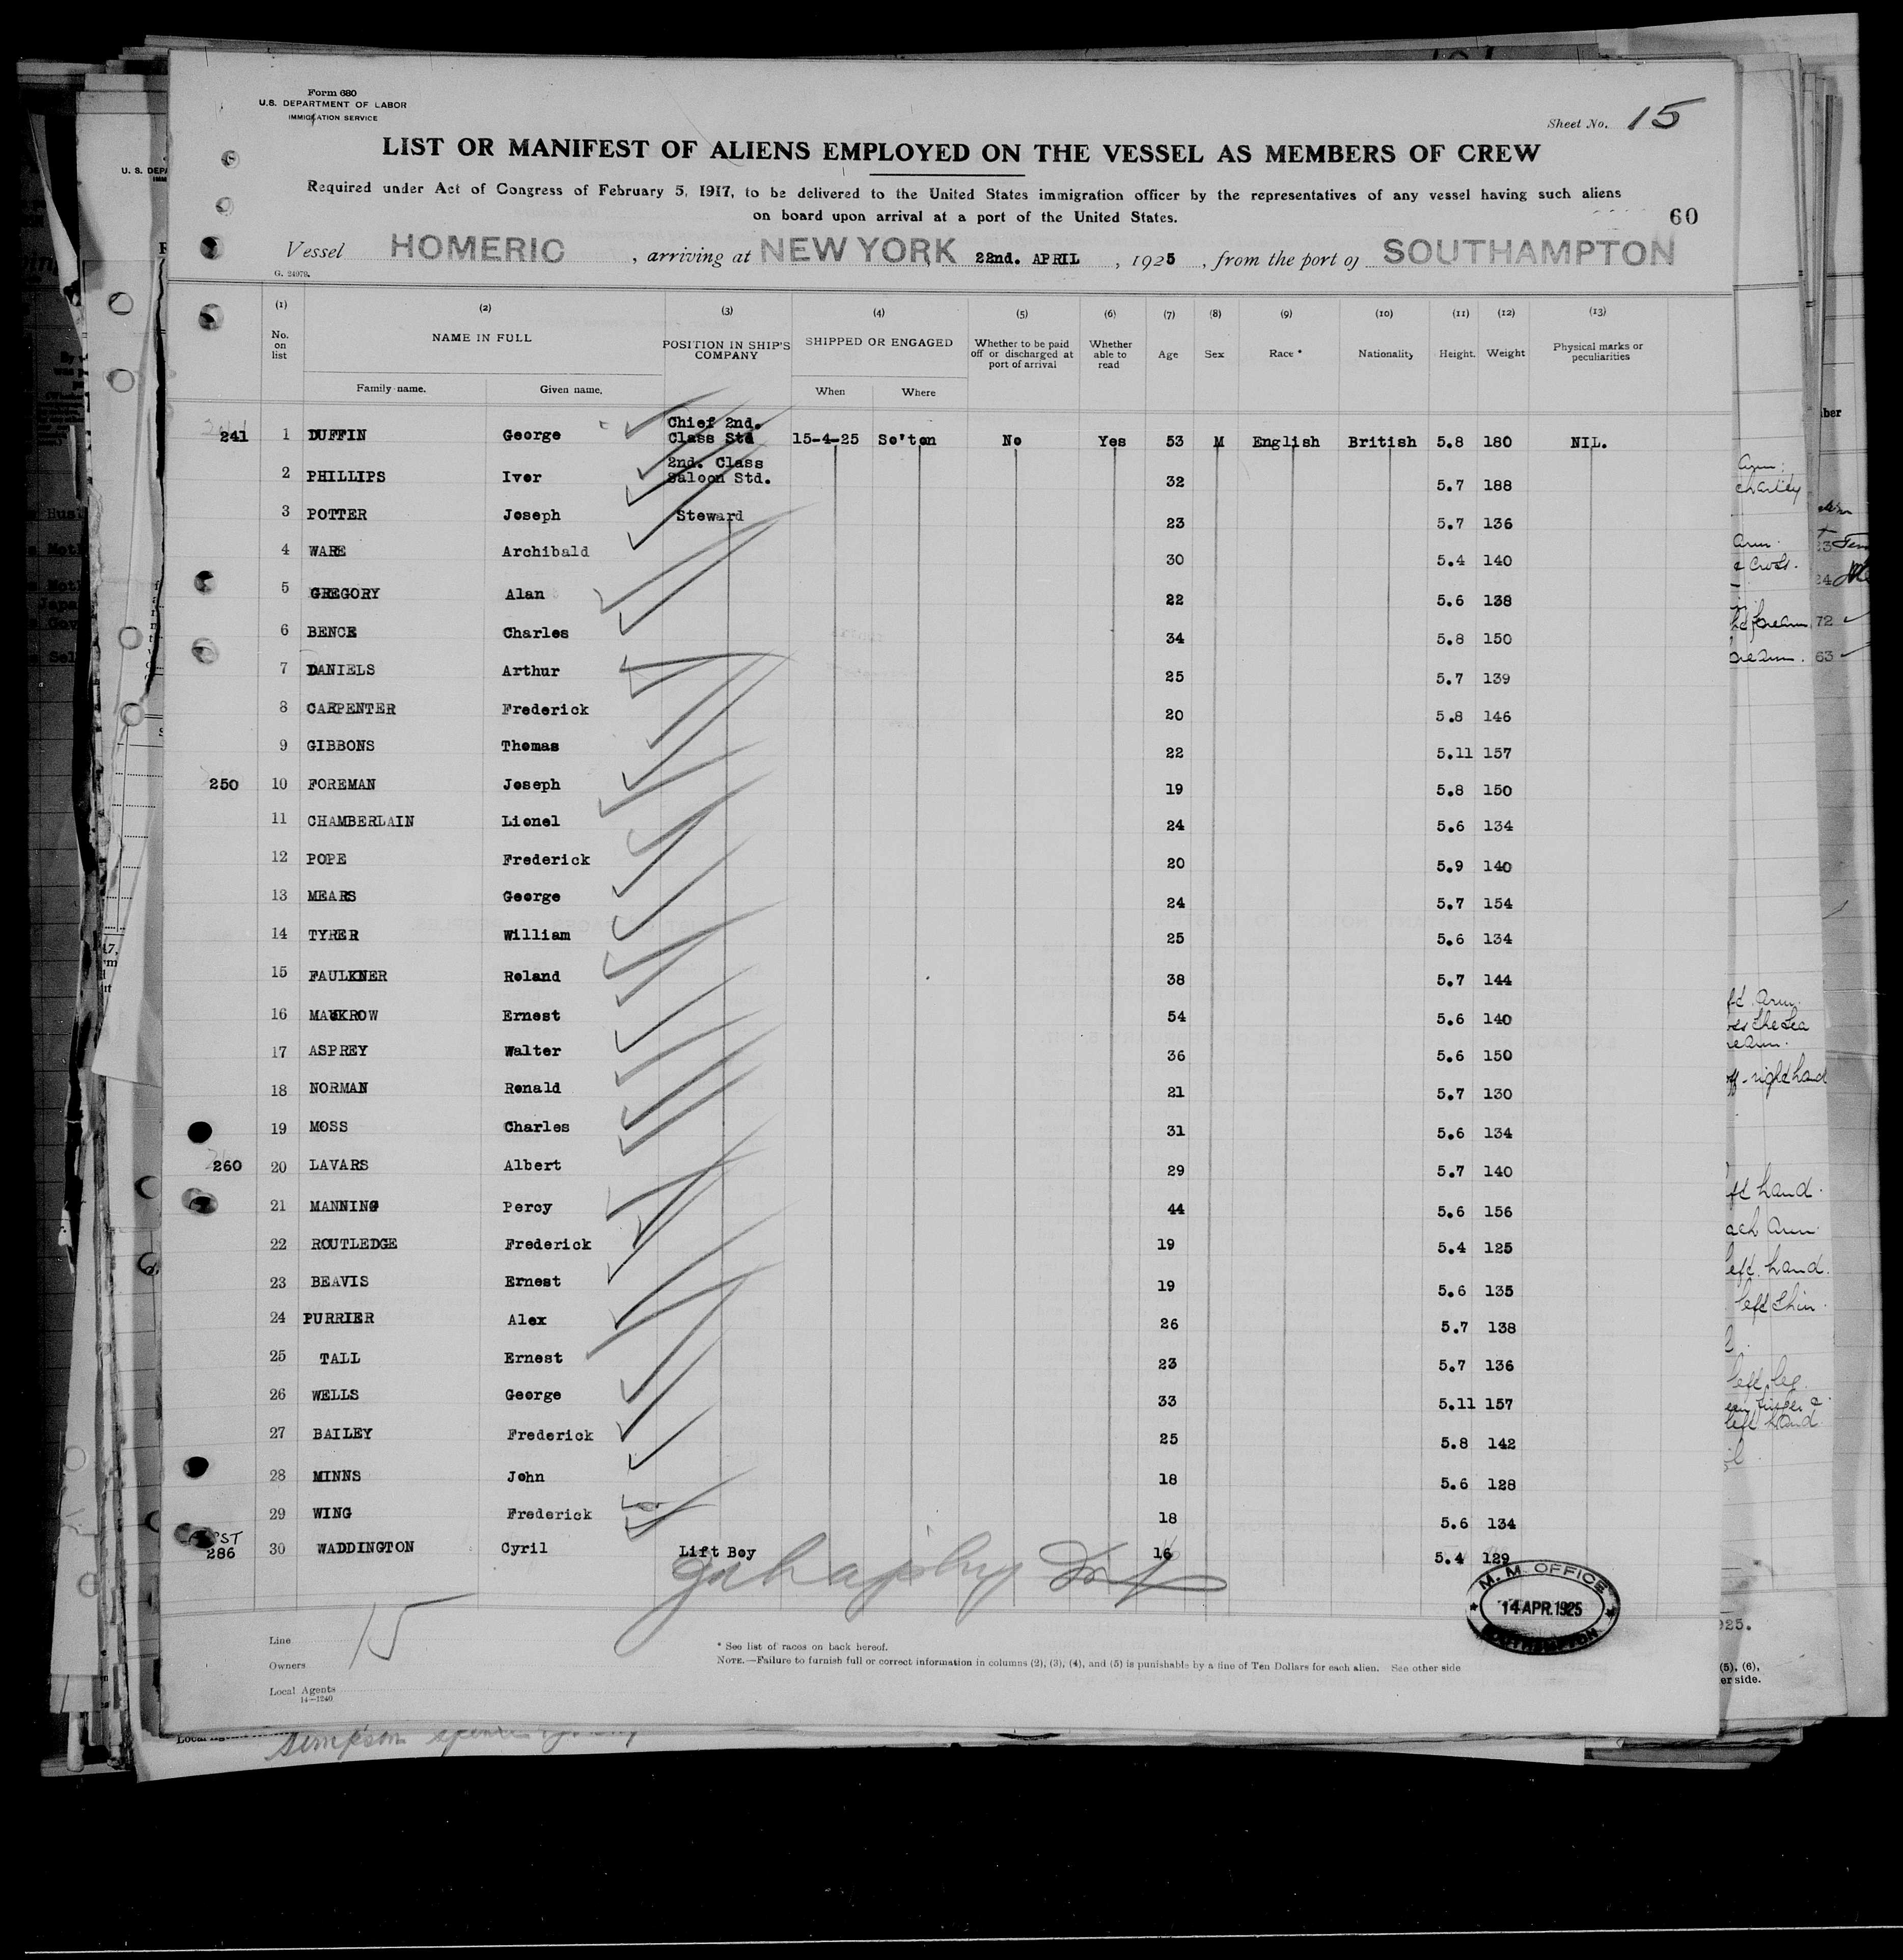 Form 680
U.S. DEPARTMENT OF LABOR
IMMIGRATION SERVICE
Sheet No. 15
LIST OR MANIFEST OF ALIENS EMPLOYED ON THE VESSEL AS MEMBERS OF CREW
Required under Act of Congress of February 5, 1917, to be delivered to the United States immigration officer by the representatives of any vessel having such aliens
on board upon arrival at a port of the United States.
60
Vessel HOMERIC , arriving at NEW YORK , 22nd. APRIL , 1925 , from the port of SOUTHAMPTON
G. 24979.
(1) (2) (3) (4) (5) (6) (7) (8) (9) (10) (11) (12) (13)
No. on list NAME IN FULL POSITION IN SHIP'S COMPANY SHIPPED OR ENGAGED Whether to be paid off or discharged at port of arrival Whether able to read Age Sex Race * Nationality Height. Weight Physical marks or peculiarities
Family name. Given name. When Where
241 1 DUFFIN George Chief 2nd. Class Std 15-4-25 So'ton No Yes 53 M English British 5.8 180 NIL.
2 PHILLIPS Ivor 2nd. Class Saloon Std. 32 5.7 188
3 POTTER Joseph Steward 23 5.7 136
4 WARE Archibald 30 5.4 140
5 GREGORY Alan 22 5.6 138
6 BENCE Charles 34 5.8 150
7 DANIELS Arthur 25 5.7 139
8 CARPENTER Frederick 20 5.8 146
9 GIBBONS Thomas 22 5.11 157
250 10 FOREMAN Joseph 19 5.8 150
11 CHAMBERLAIN Lionel 24 5.6 134
12 POPE Frederick 20 5.9 140
13 MEARS George 24 5.7 154
14 TYRER William 25 5.6 134
15 FAULKNER Roland 38 5.7 144
16 MAUKROW Ernest 54 5.6 140
17 ASPREY Walter 36 5.6 150
18 NORMAN Ronald 21 5.7 130
19 MOSS Charles 31 5.6 134
260 20 LAVARS Albert 29 5.7 140
21 MANNING Percy 44 5.6 156
22 ROUTLEDGE Frederick 19 5.4 125
23 BEAVIS Ernest 19 5.6 135
24 PURRIER Alex 26 5.7 138
25 TALL Ernest 23 5.7 136
26 WELLS George 33 5.11 157
27 BAILEY Frederick 25 5.8 142
28 MINNS John 18 5.6 128
29 WING Frederick 18 5.6 134
286 30 WADDINGTON Cyril Lift Boy 16 5.4 129
M. M. OFFICE
14 APR. 1925
SOUTHAMPTON
15
Line
Owners
Local Agents
14—1240
* See list of races on back hereof.
NOTE.—Failure to furnish full or correct information in columns (2), (3), (4), and (5) is punishable by a fine of Ten Dollars for each alien. See other side